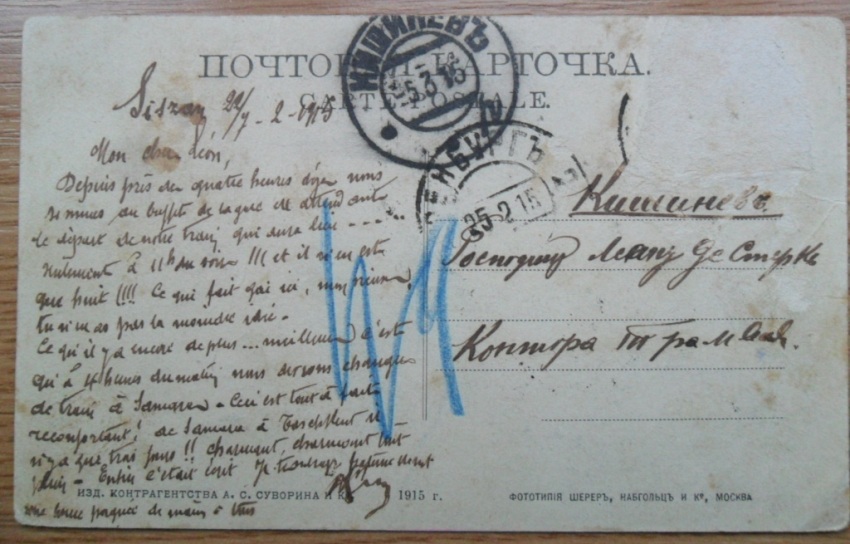 ПОЧТОВАЯ КАРТОЧКА.
CARTE POSTALE.
КИШИНЕВЪ
5.3.15
25.2.15
Siszran 22/7 - 2 - 1915
Mon cher Leon,
Depuis près de quatre heures déja nous
sommes au buffet de la gare
le départ de notre train qui aura lieu
seulement à 11h du soir !!! et il n'en est
que huit !!!! Ce qui fait qu'ici, mon vieux,
tu n'as pas la moindre
Ce qu'il y a encore de plus ... meilleur c'est
qu'à 4 heures du matin nous devrons changer
de train à Samara - Ceci est tout à fait
reconfortant! de Samara à Taschkent il
n'y a que trois jours !! charmant, charmant tout
plein - Enfin c'était écrit
une bonne poignée de mains à tous
Кишиневъ.
Господину Де Стерке
Контора трамвая.
ИЗД. КОНТРАГЕНТСТВА А. С. СУВОРИНА И К 1915 г.
ФОТОТИПІЯ ШЕРЕРЪ, НАБГОЛЬЦЪ И К⁰, МОСКВА